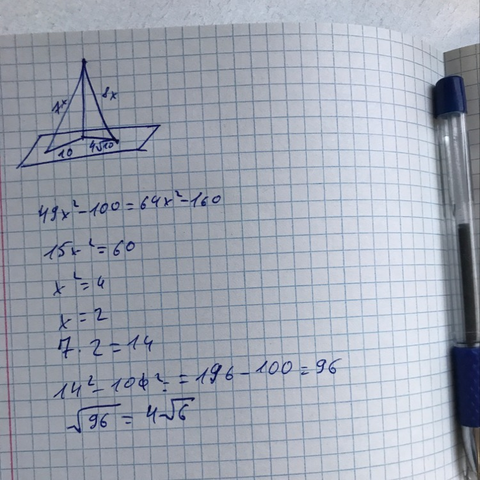 7x 8x
10 4√10
49x²-100=64x²-160
15x²=60
x²=4
x=2
7·2=14
14²-10²==196-100=96
√96=4√6